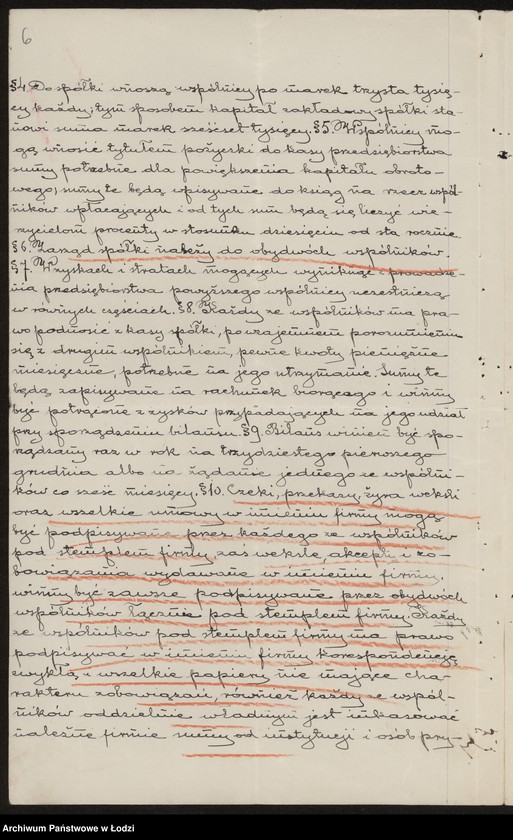 6
§4. Do spółki wnoszą wspólnicy po marek trzysta tysię-
cy każdy; tym sposobem kapitał zakładowy spółki sta-
nowi suma marek sześćset tysięcy. §5. Wspólnicy mo-
gą wnosić tytułem pożyczki do kasy przedsiębiorstwa
sumy potrzebne dla powiększenia kapitału obroto-
wego; sumy te będą wpisywane do ksiąg na rzecz wspól-
ników wpłacających i od tych sum będą się liczyć wie-
rzycielom procenty w stosunku dziesięciu od sta rocznie
§6. Zarząd spółki należy do obydwóch wspólników.
§7. W zyskach i stratach mogących wyniknąć z prowadze-
nia przedsiębiorstwa powyższego wspólnicy uczestniczą
w równych częściach. §8. Każdy ze wspólników ma pra-
wo podnosić z kasy spółki, po wzajemnem porozumieniu
się z drugim wspólnikiem, pewne kwoty pieniężne
miesięcznie, potrzebne na jego utrzymanie. Sumy te
będą zapisywane na rachunek bieżącego i winny
być potrącone z zysków przypadających na jego udział
przy sporządzeniu bilansu. §9. Bilans winien być spo-
rządzany raz w rok na trzydziestego pierwszego
grudnia albo na żądanie jednego ze wspólni-
ków co sześć miesięcy. §10. Czeki, przekazy, żyra weksli
oraz wszelkie umowy w imieniu firmy mogą
być podpisywane przez każdego ze wspólników
pod stemplem firmy, zaś weksle, akcepty i zo-
bowiązania wydawane w imieniu firmy,
winny być zawsze podpisywane przez obydwóch
wspólników łącznie pod stemplem firmy. Każdy
ze wspólników pod stemplem firmy ma prawo
podpisywać w imieniu firmy korespondencję
zwykłą i wszelkie papiery nie mające cha-
rakteru zobowiązań, również każdy ze wspól-
ników oddzielnie władnym jest inkasować
należne firmie sumy od instytucji i osób pry-
Archiwum Państwowe w Łodzi